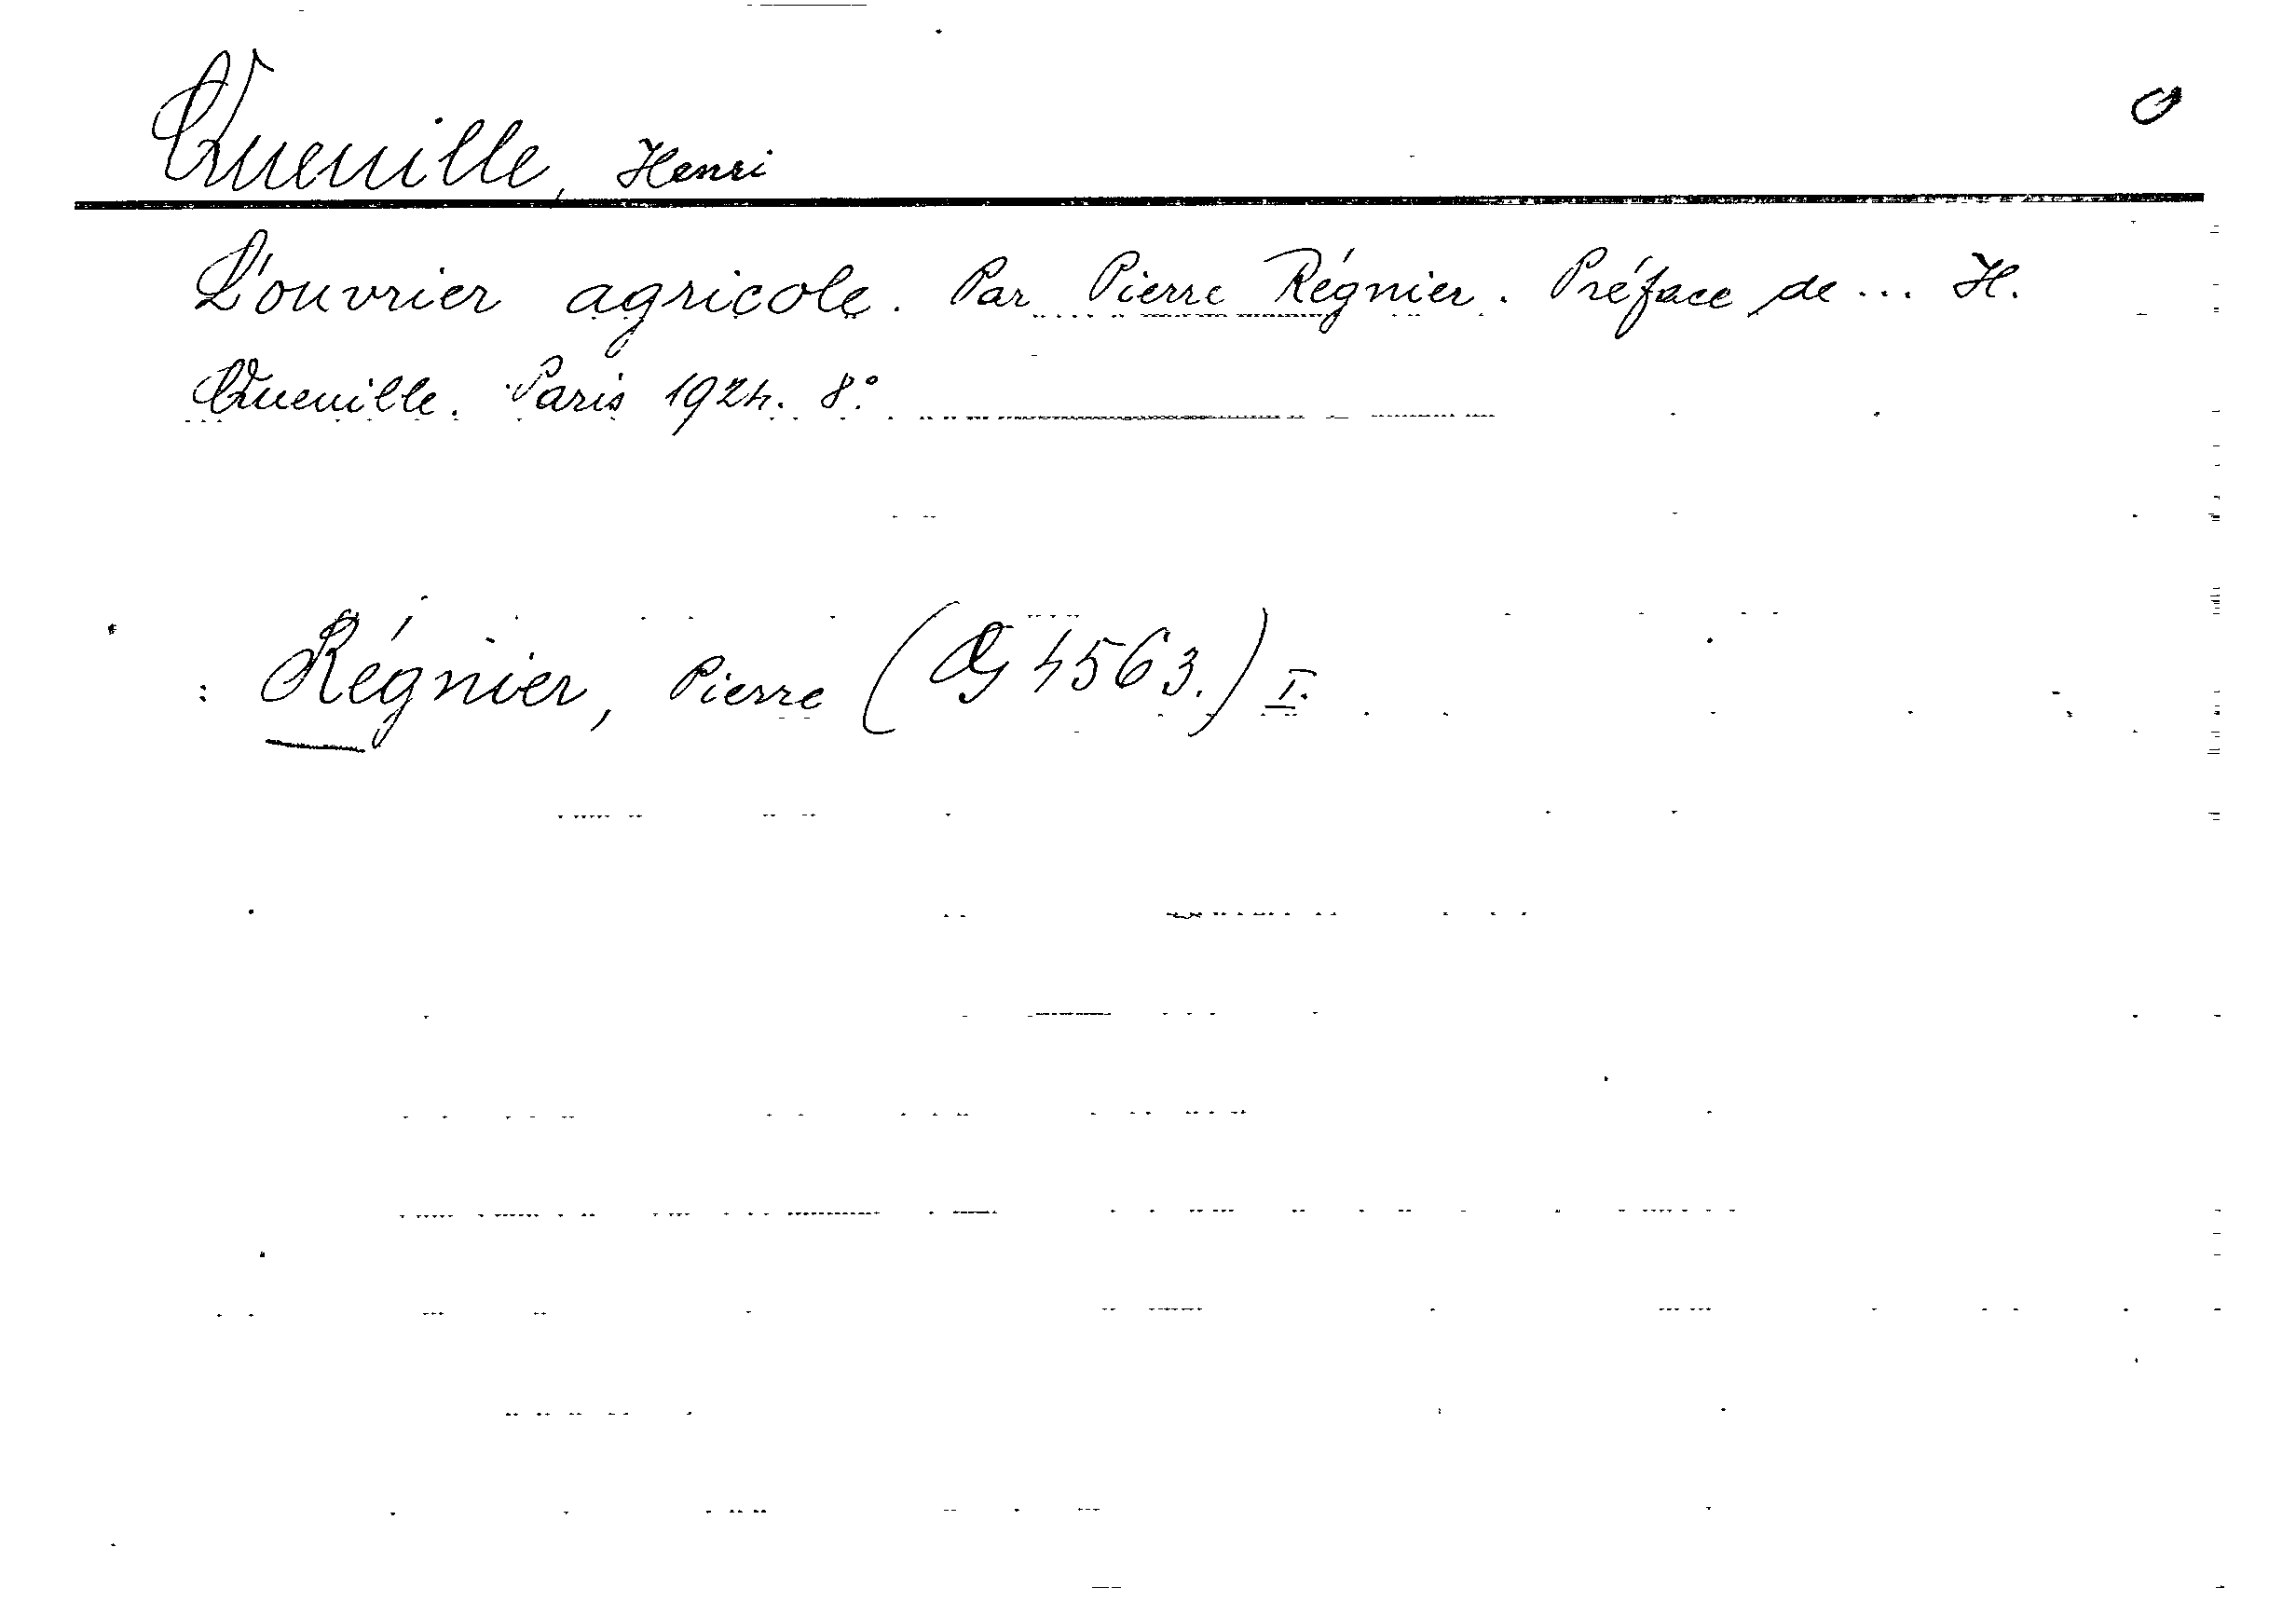 Queuille, Henri
L'ouvrier agricole. Par Pierre Régnier. Préface de ... H.
Queuille. Paris 1924. 8°
: Régnier, Pierre (4563.) I.